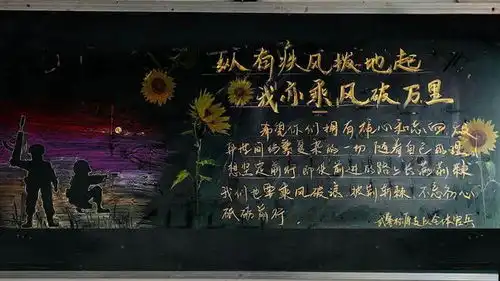 纵有疾风拨地起
我亦乘风破万里
希望你们拥有雄心和
世间 的一切 随着自己
想坚定前行 即使前进的路上长满荆棘
我们也要乘风破浪 披荆斩棘 不忘初心
砥砺前行.
全体官兵